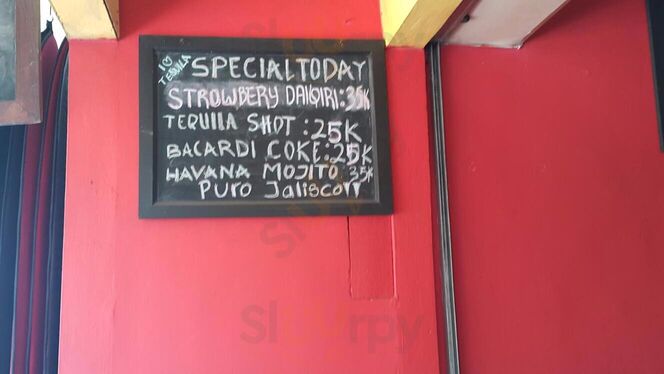 I ♡
TEQUILA
SPECIAL TODAY
STROWBERY DAIQIRI: 35K
TEQUILA SHOT : 25K
BACARDI COKE: 25K
HAVANA MOJITO 35K
PURO Jalisco